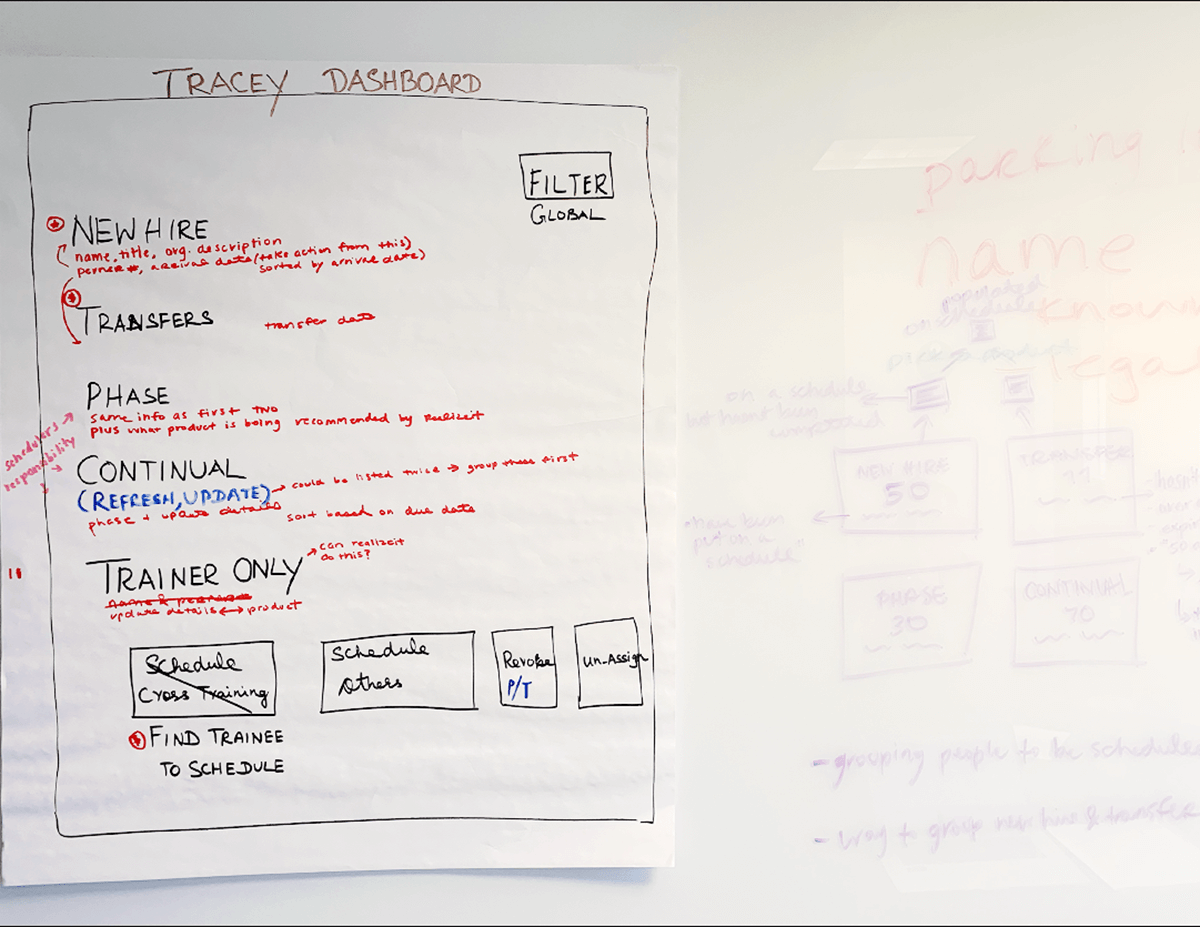 TRACEY DASHBOARD
FILTER
GLOBAL
NEW HIRE
name, title, org. description
perner #, arrival date (take action from this)
sorted by arrival date)
TRANSFERS
transfer date
PHASE
same info as first two
plus what product is being recommended by realizeit
schedulers
responsibility
CONTINUAL
(REFRESH, UPDATE)
could be listed twice → group these first
phase + update details
sort based on due date
TRAINER ONLY
can realizeit
do this?
name & perner
update details ↔ product
Schedule
Cross Training
Schedule
Others
Revoke
P/T
Un-Assign
FIND TRAINEE
TO SCHEDULE
parking
name
known
lega
on a schedule
but hasn't been
completed
NEW HIRE
50
TRANSFER
- have been
put on a
schedule"
PHASE
30
CONTINUAL
70
- grouping people to be schedule
- way to group new hire & transfer